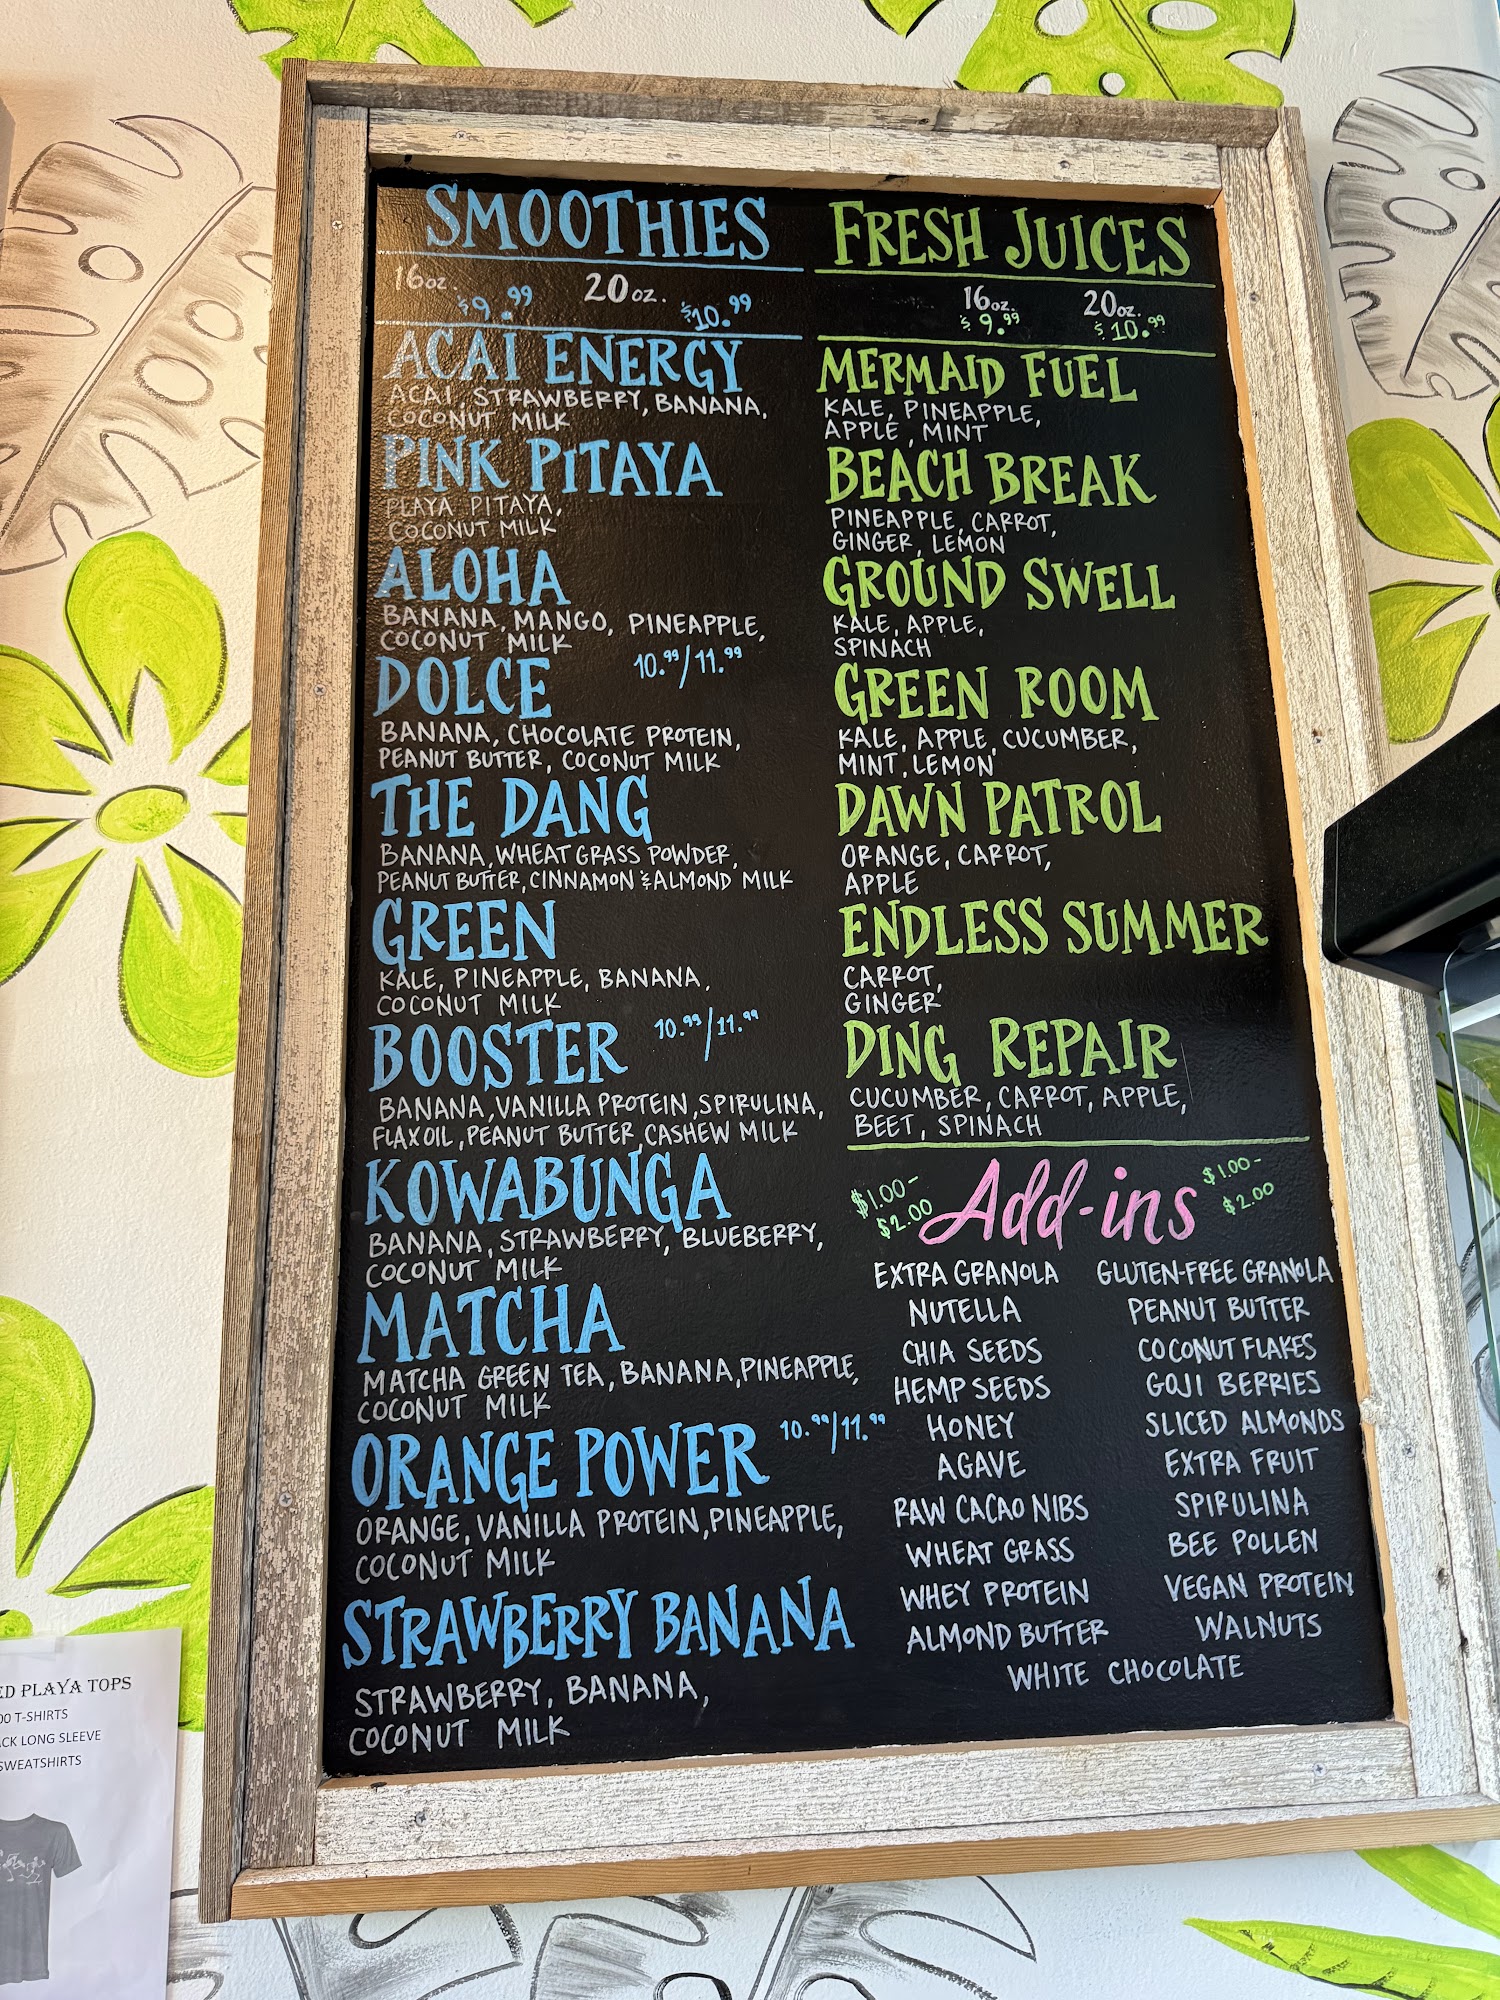 SMOOTHIES
16oz. $9.99 20oz. $10.99
ACAI ENERGY
ACAI, STRAWBERRY, BANANA,
COCONUT MILK
PINK PITAYA
PLAYA PITAYA,
COCONUT MILK
ALOHA
BANANA, MANGO, PINEAPPLE,
COCONUT MILK
DOLCE 10.99/11.99
BANANA, CHOCOLATE PROTEIN,
PEANUT BUTTER, COCONUT MILK
THE DANG
BANANA, WHEAT GRASS POWDER,
PEANUT BUTTER, CINNAMON & ALMOND MILK
GREEN
KALE, PINEAPPLE, BANANA,
COCONUT MILK
BOOSTER 10.99/11.99
BANANA, VANILLA PROTEIN, SPIRULINA,
FLAX OIL, PEANUT BUTTER, CASHEW MILK
KOWABUNGA
BANANA, STRAWBERRY, BLUEBERRY,
COCONUT MILK
MATCHA
MATCHA GREEN TEA, BANANA, PINEAPPLE,
COCONUT MILK
ORANGE POWER 10.99/11.99
ORANGE, VANILLA PROTEIN, PINEAPPLE,
COCONUT MILK
STRAWBERRY BANANA
STRAWBERRY, BANANA,
COCONUT MILK
FRESH JUICES
16oz. 20oz.
$9.99 $10.99
MERMAID FUEL
KALE, PINEAPPLE,
APPLE, MINT
BEACH BREAK
PINEAPPLE, CARROT,
GINGER, LEMON
GROUND SWELL
KALE, APPLE,
SPINACH
GREEN ROOM
KALE, APPLE, CUCUMBER,
MINT, LEMON
DAWN PATROL
ORANGE, CARROT,
APPLE
ENDLESS SUMMER
CARROT,
GINGER
DING REPAIR
CUCUMBER, CARROT, APPLE,
BEET, SPINACH
$1.00-$2.00 Add-ins $1.00-$2.00
EXTRA GRANOLA GLUTEN-FREE GRANOLA
NUTELLA PEANUT BUTTER
CHIA SEEDS COCONUT FLAKES
HEMP SEEDS GOJI BERRIES
HONEY SLICED ALMONDS
AGAVE EXTRA FRUIT
RAW CACAO NIBS SPIRULINA
WHEAT GRASS BEE POLLEN
WHEY PROTEIN VEGAN PROTEIN
ALMOND BUTTER WALNUTS
WHITE CHOCOLATE
PLAYA TOPS
T-SHIRTS
LONG SLEEVE
SWEATSHIRTS